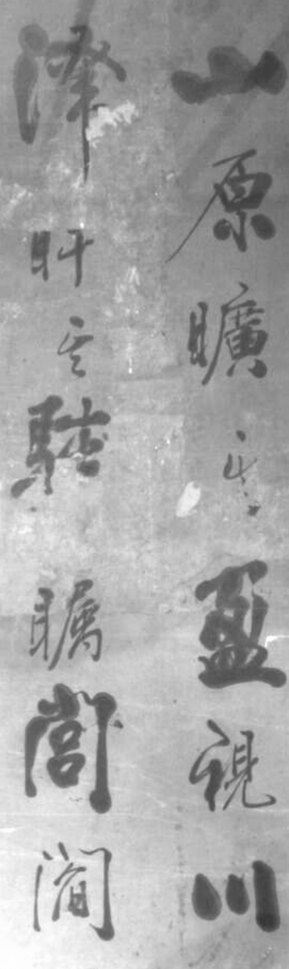 山原曠其盈視川
澤盱其駭矚閭閻